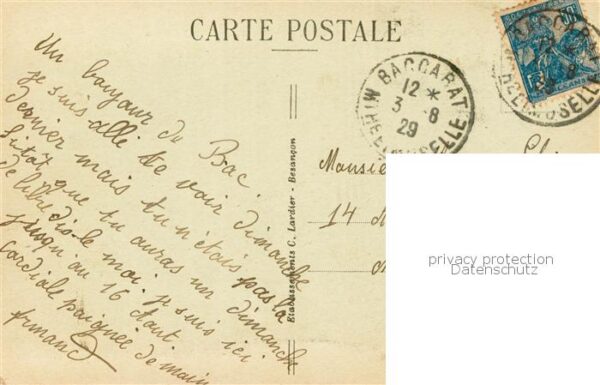 CARTE POSTALE
Un bonjour du Bac.
je suis allé te voir dimanche
dernier mais tu n'étais pas là
Sitôt que tu auras un dimanche
de libre dis-le moi, je suis ici
jusqu'au 16 Aout.
Cordiale poignée de main
Etablissements C. Lardier - Besançon
BACCARAT
12 *
3 - 8
29
MEURTHE ET MOSELLE
BACCARAT
Monsieur
14
privacy protection
Datenschutz